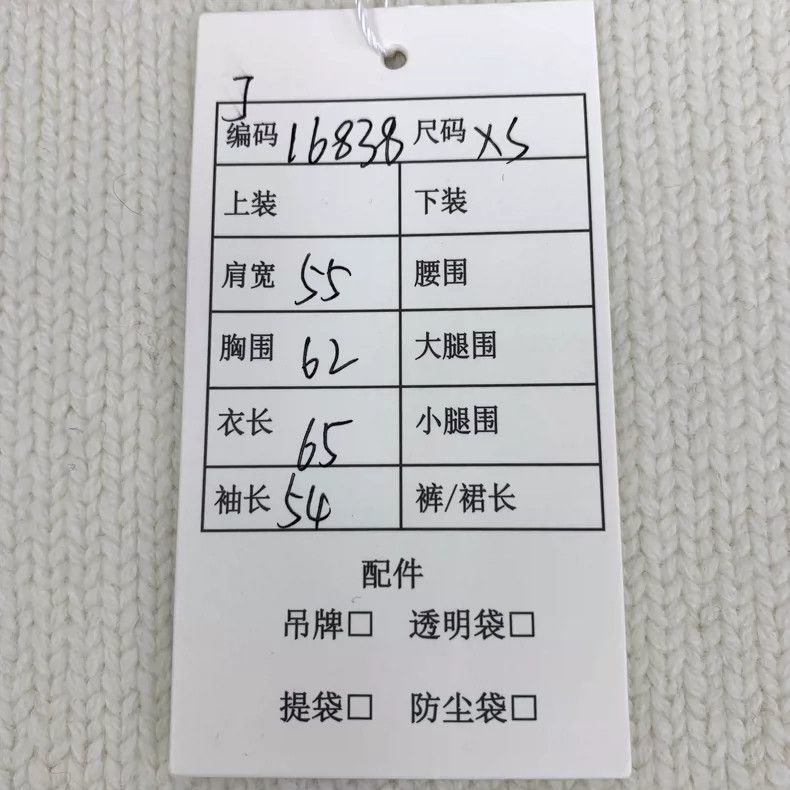 J
编码 16838 尺码 XS
上装 下装
肩宽 55 腰围
胸围 62 大腿围
衣长 65 小腿围
袖长 54 裤/裙长
配件
吊牌□ 透明袋□
提袋□ 防尘袋□